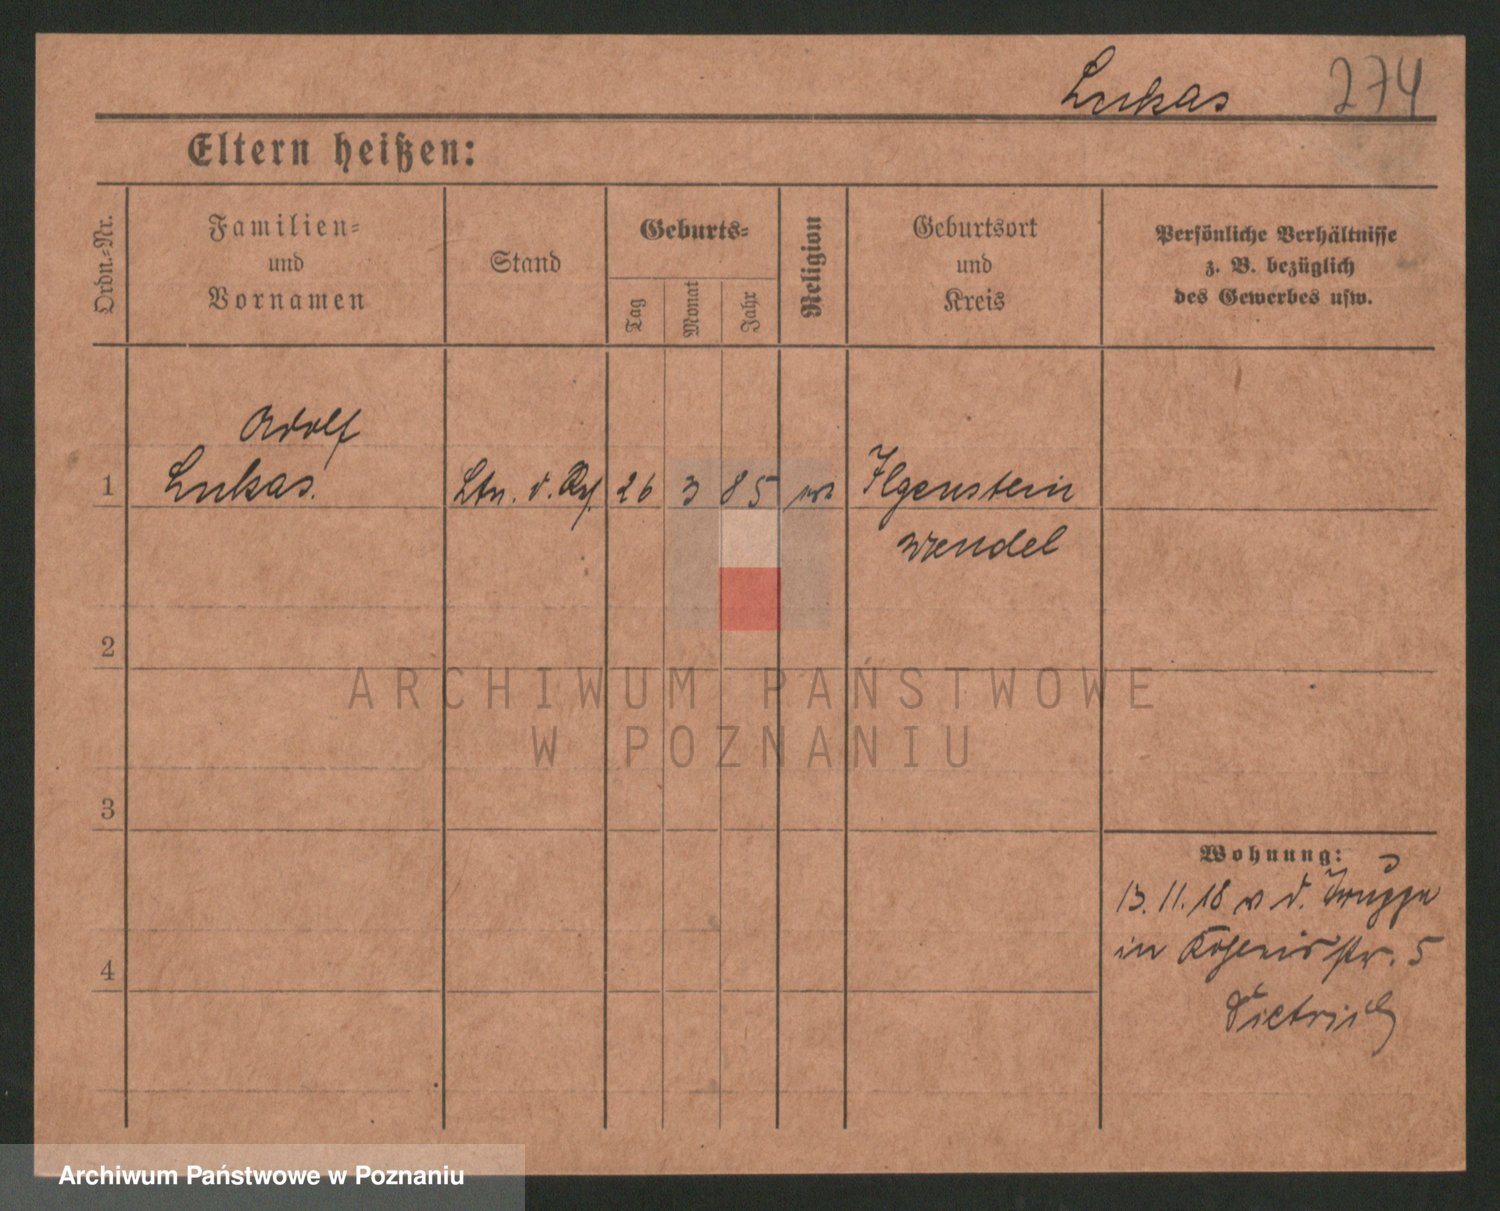 Lukas 274
Eltern heißen:
Ordn.-Nr.
Familien-
und
Vornamen
Stand
Geburts-
Tag
Monat
Jahr
Religion
Geburtsort
und
Kreis
Persönliche Verhältnisse
z. B. bezüglich
des Gewerbes usw.
Adolf
1 Lukas. Ltn. d. Res. 26 3 85 Ilgenstein
2
3
4
ARCHIWUM PAŃSTWOWE
W POZNANIU
Wohnung:
13. 11. 18 v d. Truppe
in str. 5
Dietrich
Archiwum Państwowe w Poznaniu